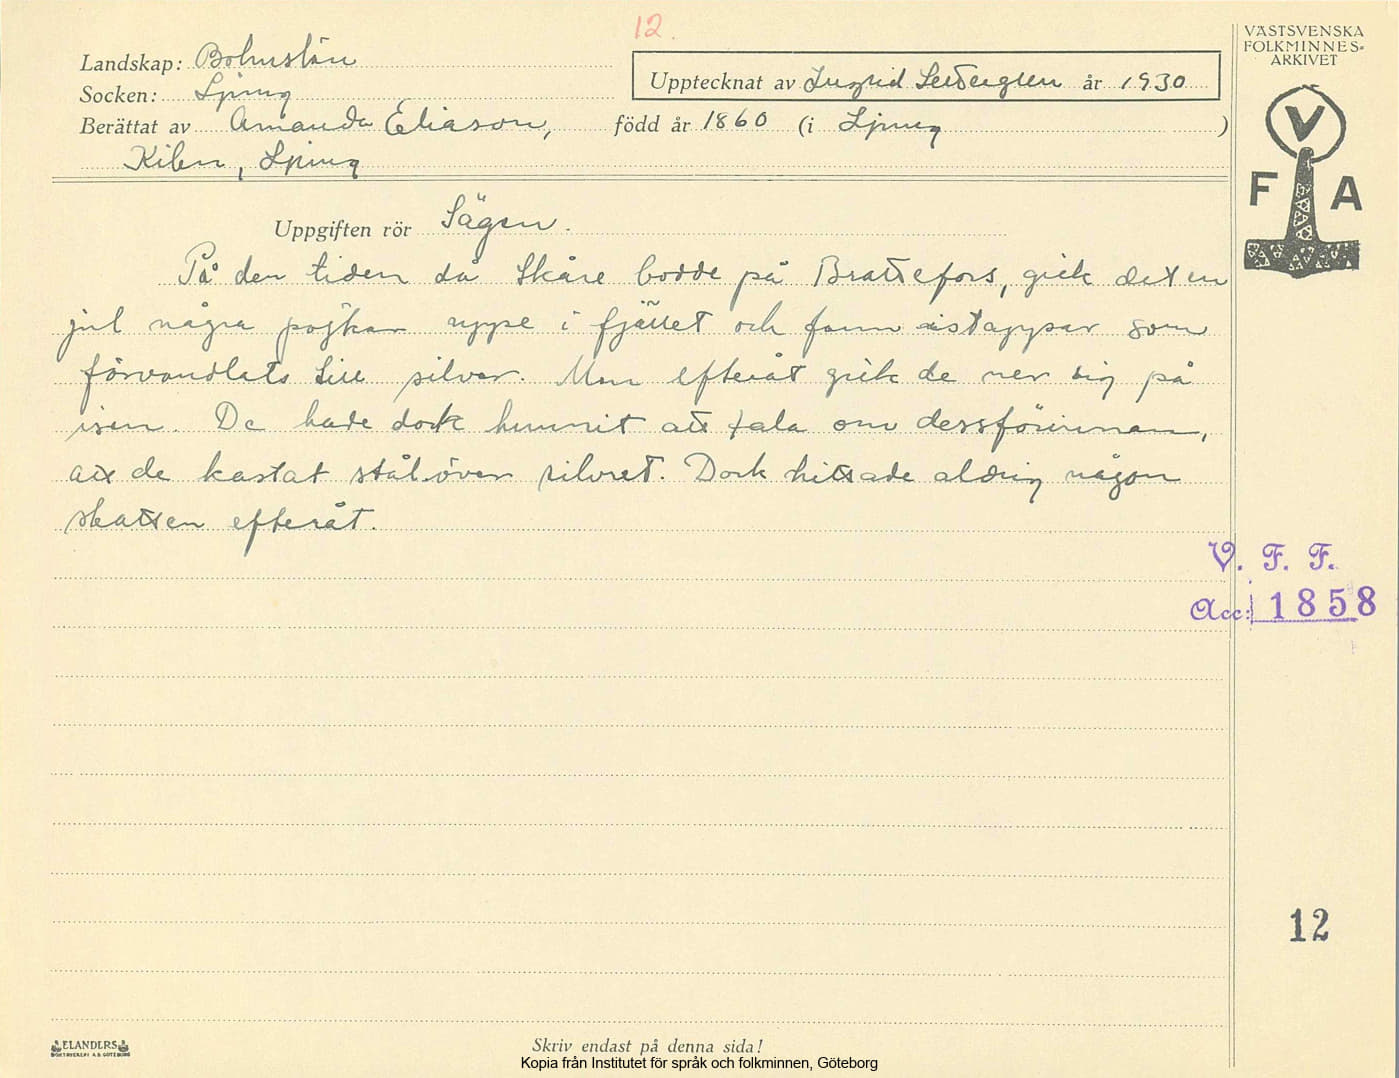 12.
VÄSTSVENSKA
FOLKMINNES-
ARKIVET
Landskap: Bohuslän
Socken: Ljung
Upptecknat av Ingrid år 1930
Berättat av Amanda Eliason, född år 1860 (i Ljung)
Kilen, Ljung
V
F A
Uppgiften rör Sägen.
På den tiden då Skåre bodde på Brattefors, gick det en
jul några pojkar uppe i fjället och fann istappar som
förvandlats till silver. Men efteråt gick de ner sig på
isen. De hade dock hunnit att tala om dessförinnan,
att de kastat stål över silvret. Dock hittade aldrig någon
skatten efteråt.
V. F. F.
Acc: 1858
12
ELANDERS
BOKTRYCKERI A.B. GÖTEBORG
Skriv endast på denna sida!
Kopia från Institutet för språk och folkminnen, Göteborg